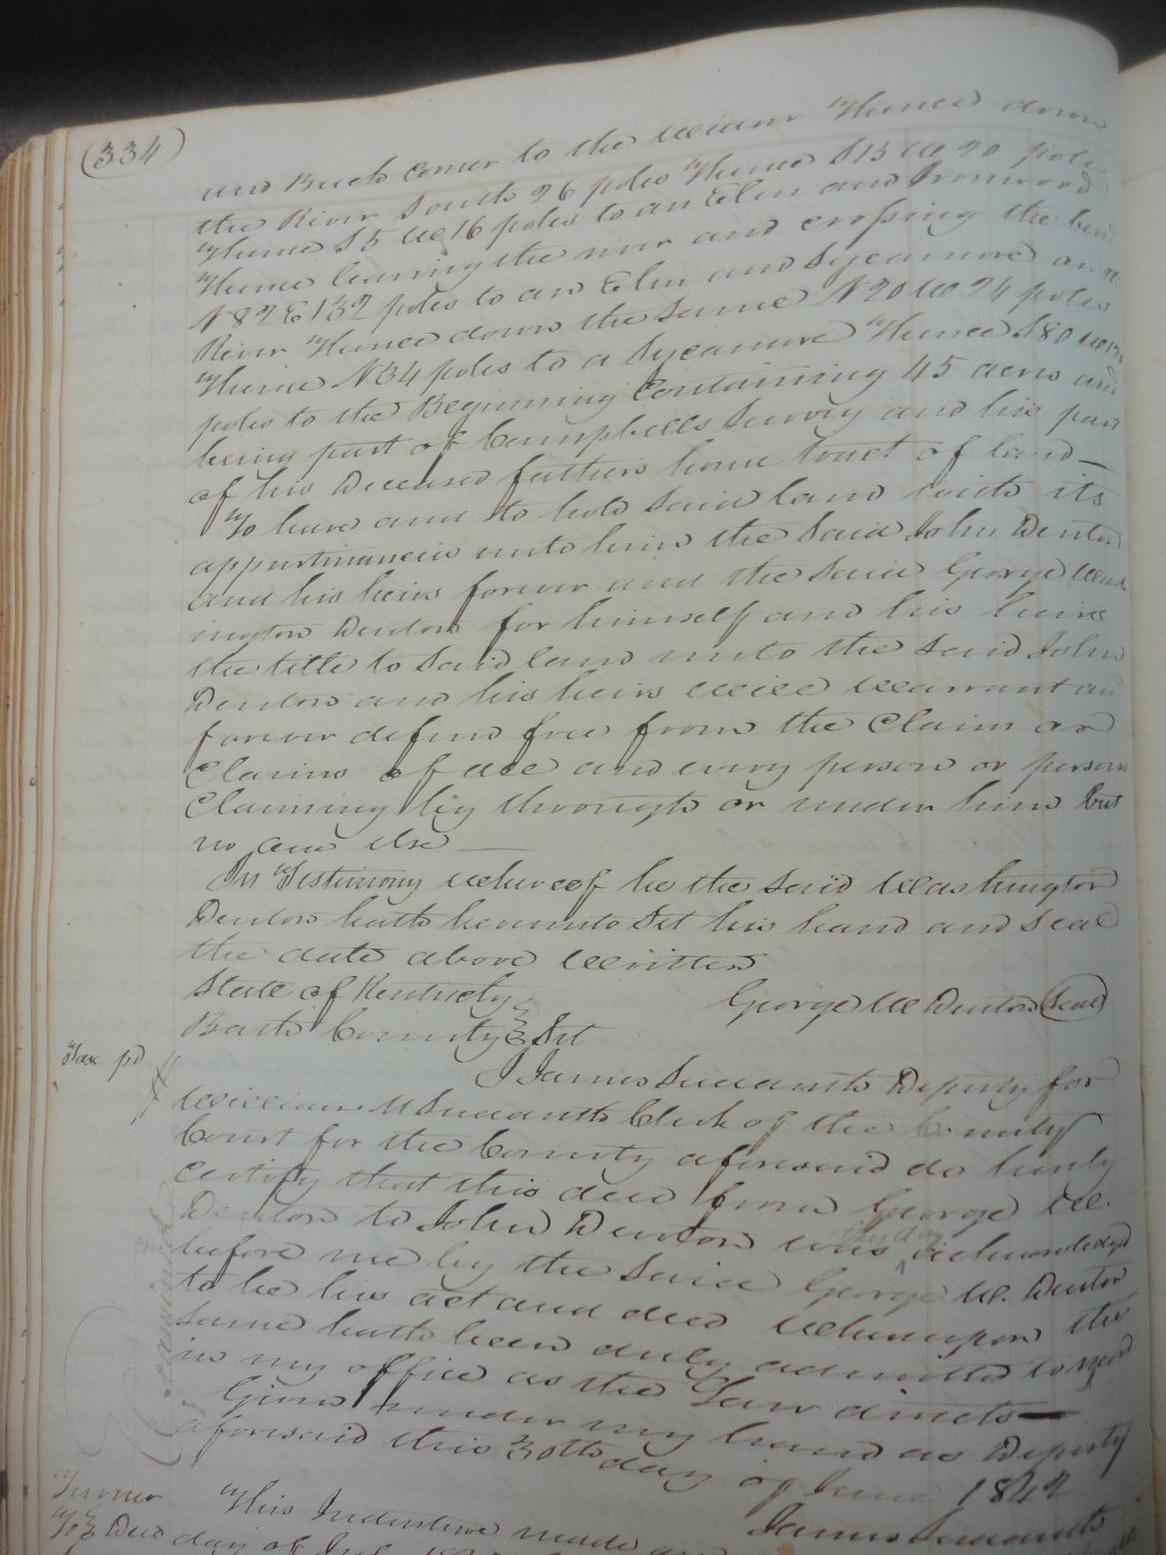 (334)
and Buck Corner to the Thence down
the River South 26 poles Thence S13 W 20 poles
Thence S5 W 16 poles to an Elm and Ironwood
Thence leaving the river and crossing the
N82 E 132 poles to an Elm and Sycamore on
River Thence down the same N20 W 24 poles
Thence N34 poles to a Sycamore Thence S80
poles to the Beginning Containing 45 acres and
being part of Campbells Survey and his part
of his Deceased fathers home tract of land —
To have and to hold said land with its
appurtinances unto him the said John Denton
and his heirs forever and the said George Wash
ington Denton for himself and his heirs
the title to said land unto the said John
Denton and his heirs will Warrant and
forever defend free from the Claim or
Claims of all and every person or persons
Claiming by through or under him but
no one else —
In Testimony whereof he the said Washington
Denton hath hereunto Set his hand and Seal
the date above Written
George W Denton (Seal)
State of Kentucky
Bath County Sct
Tax pd
I James Sudduth Deputy for
William M Sudduth Clerk of the County
Court for the County aforesaid do hereby
Certify that this deed from George W.
Denton to John Denton was this day acknowledged
before me by the said George W. Denton
to be his act and deed Whereupon the
same hath been duly admitted to record
in my office as the Law directs —
Given under my hand as Deputy
aforesaid this 30th day of June 1842
James Sudduth
Examined
Turner
To Deed
This Indenture made
day of